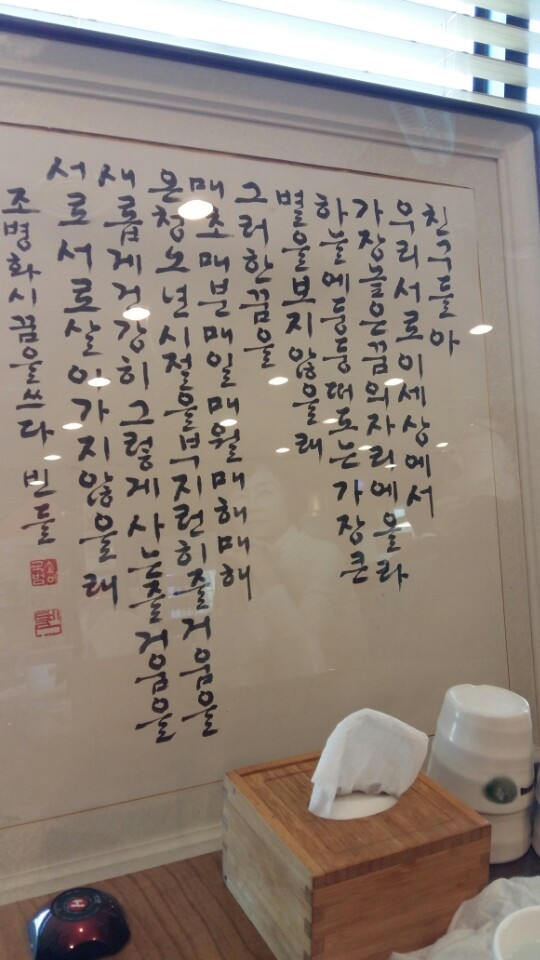 친구들아
우리서로이세상에서
가장높은꿈의자리에올라
하늘에둥둥떠도는가장큰
별을보지않을래
그러한꿈을
매초매분매일매월매해매해
온청노년시절을부지런히즐거움을
새롭게건강히그렇게사는즐거움을
서로서로살아가지않을래
조병화시꿈을쓰다 빈들